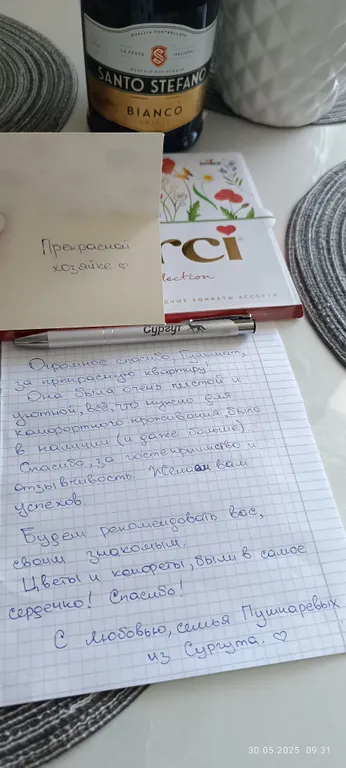 SANTO STEFANO
BIANCO
Прекрасной
хозяйке ♡
rci
lection
Сургут
Огромное спасибо,
за прекрасную квартиру!
Она была очень чистой и
уютной, всё, что нужно для
комфортного проживания, было
в наличии (и даже больше)
Спасибо, за гостеприимство и
отзывчивость. Желаем вам
успехов.
Будем рекомендовать вас,
своим знакомым.
Цветы и конфеты, были в самое
сердечко! Спасибо!
С любовью, семья Пушкаревых
из Сургута. ♡
30.05.2025 09:31